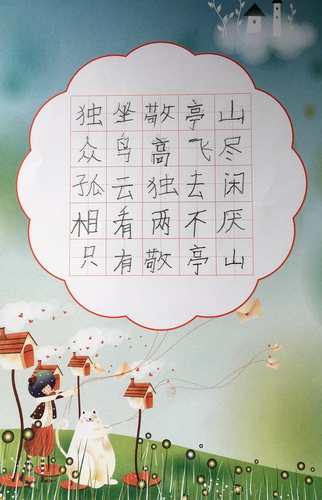 独坐敬亭山
众鸟高飞尽
孤云独去闲
相看两不厌
只有敬亭山